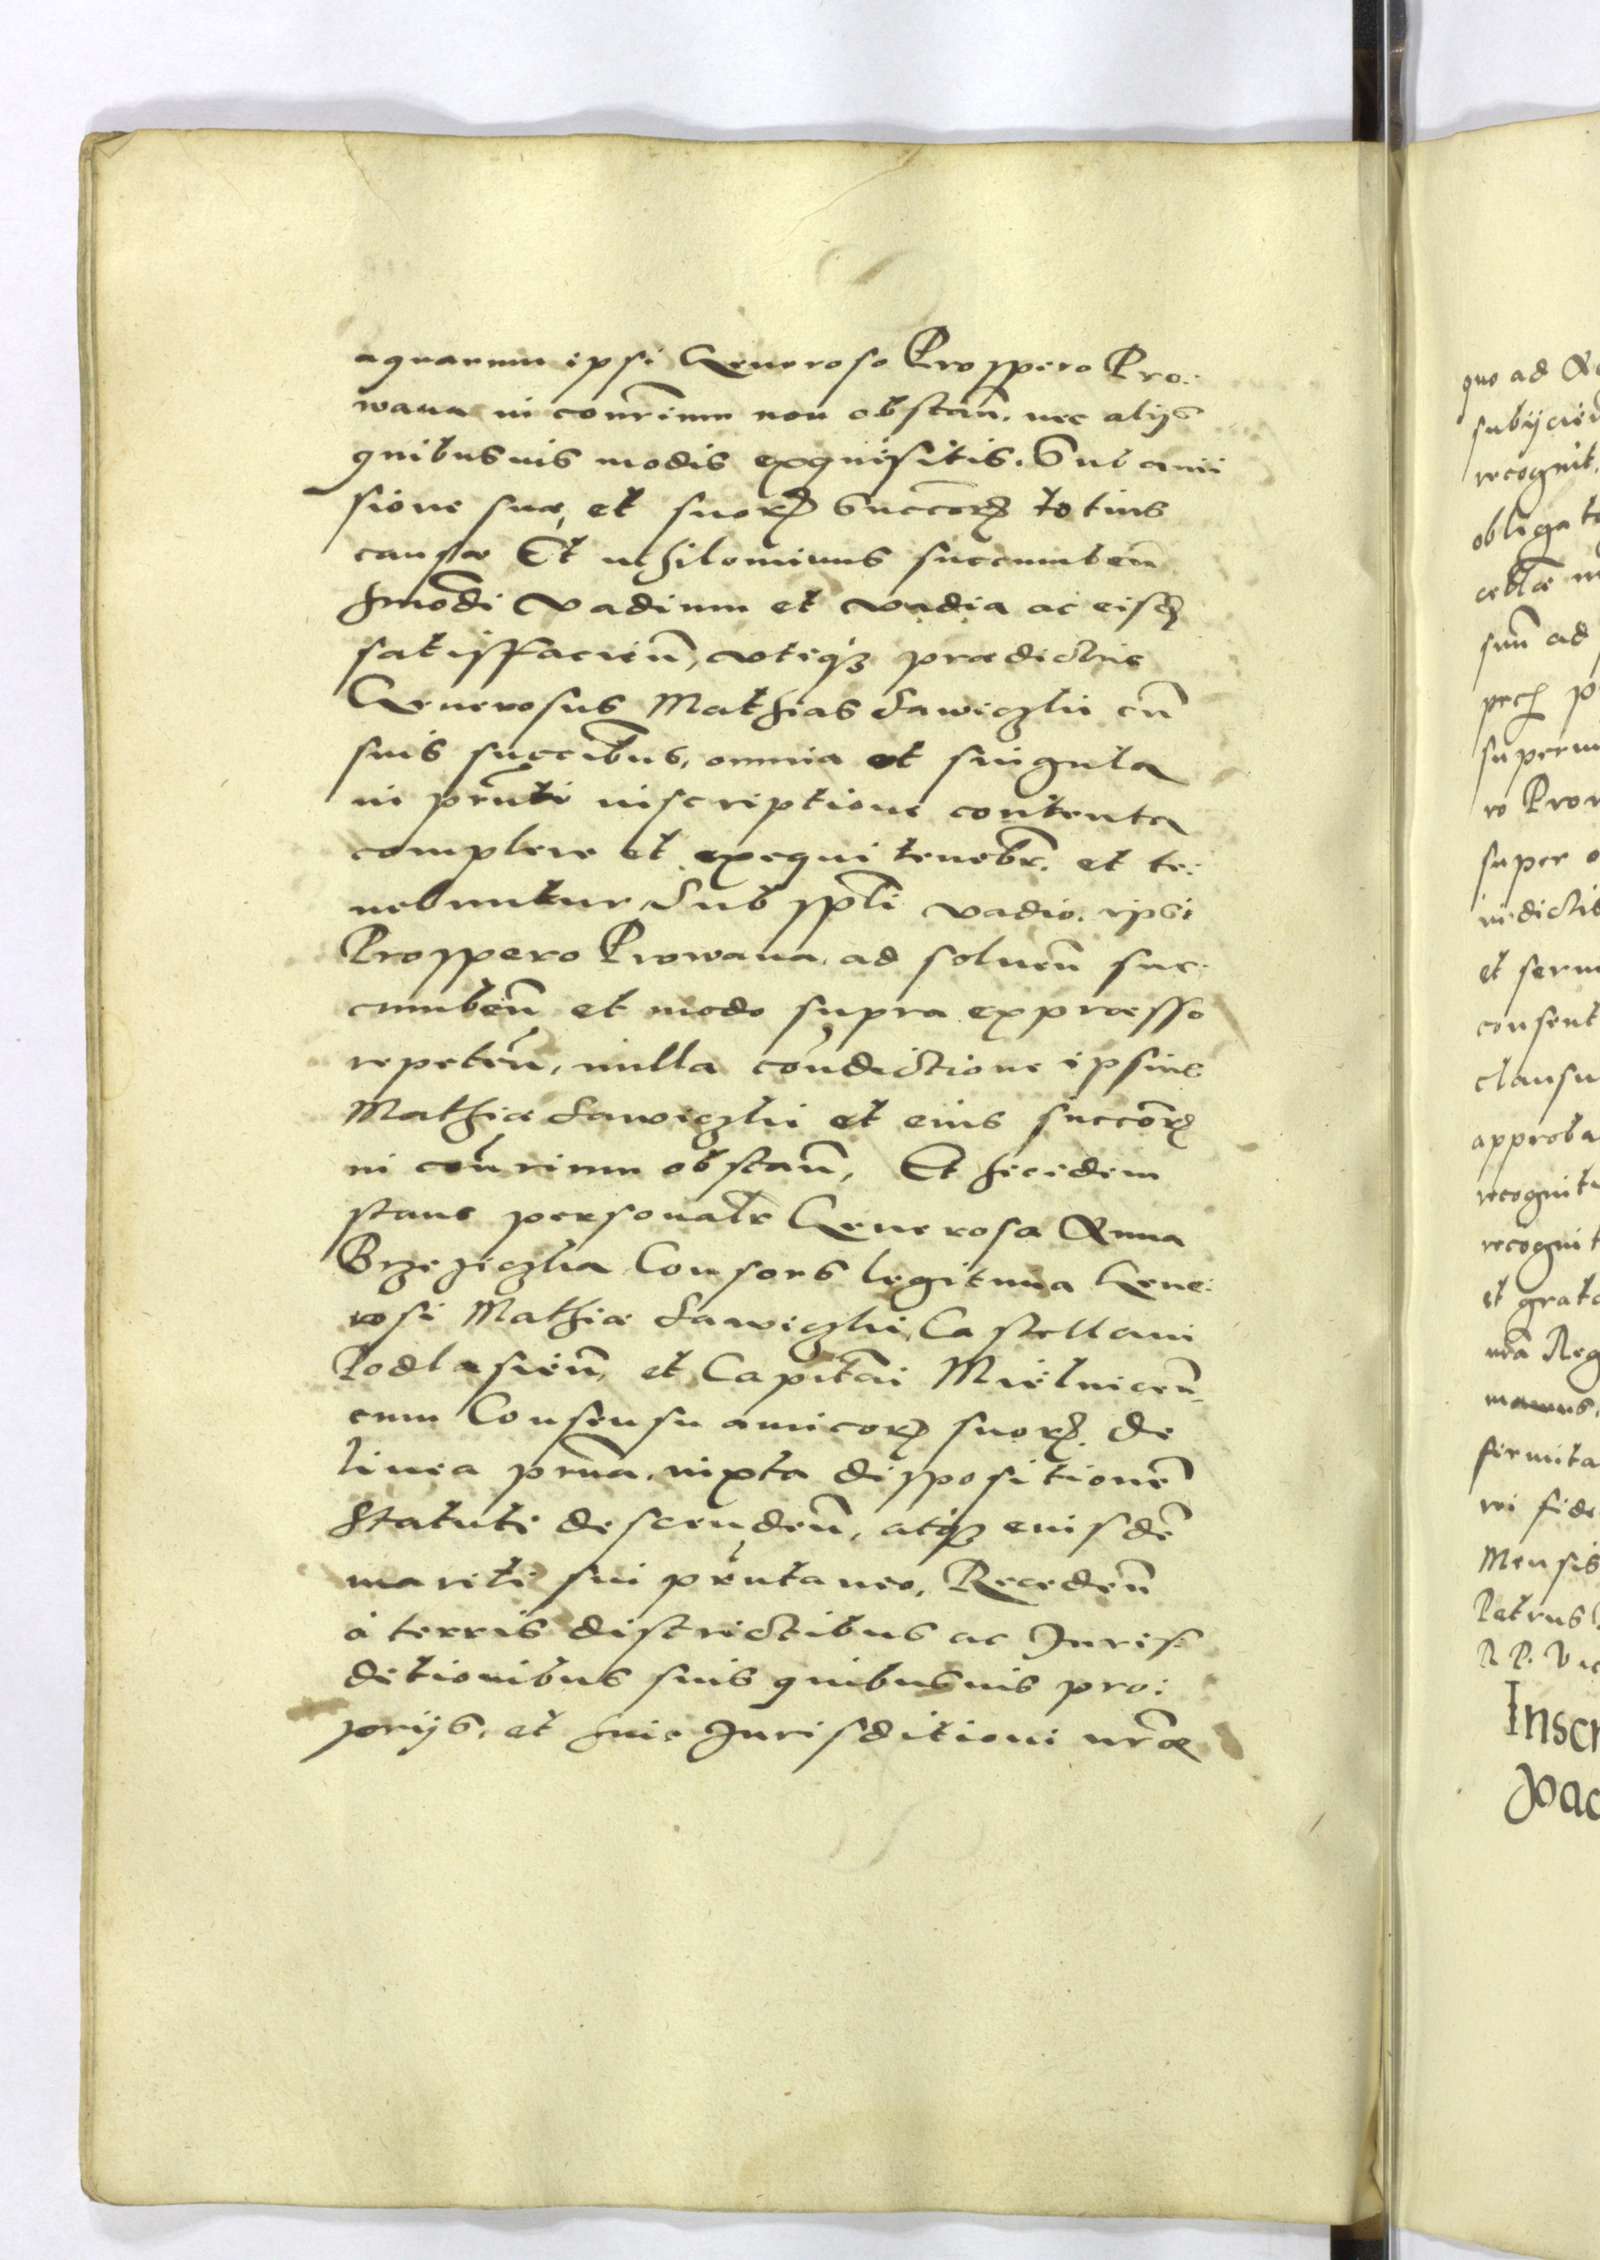 aquarum ipsi Generoso Prospero Pro:
wana in conr̃ium non obstañ. nec alijs
quibusuis modis exquisitis. Sub amii
sione suæ, et suorꝝ Succorꝝ totius
causæ Et nihilominus succumbeñ
hmõdi vadium et vadia ac eisdꝫ
satisffacieñ, vtiqꝫ prædictus
Generosus Mathias Sawiczki cũ
suis succibus, omnia et singula
in prñti inscriptione contenta
complere et exequi tenebr̃. et te:
nebuntur, Sub spli vadio. ipsi
Prospero Prowana. ad soluen̄ suc:
cumbeñ et modo supra expræsso
repeteñ, nulla condictione ipsius
Mathiæ Sawiczki et eius succorꝝ
in conr̃ium obstañ, Et hicidem
stans personalr̃ Generosa Anna
Brzeziczka Consors legitima Gene:
rosi Mathiæ Sawiczki, Castellani
Podlasieñ, et Capitãi Mielniceñ
cum Consensu amicorꝝ suorꝝ. de
linea prñа. iuxta dispositionẽ
Statuti descendeñ, atqꝫ eiusdẽ
mariti sui prñtaneo, Recedeñ
à terris districtibus ac Juris:
ditionibus suis quibusuis pro:
prijs, et huic Jurisditioni nr̃æ
quo ad
recognit,
obligat
sup
super
et
consent
clausu
approba
recognit
et grat
Reg
manus.
firmita
fide
Mensis
Petrus
R. P. Vic
Inscr
Joac